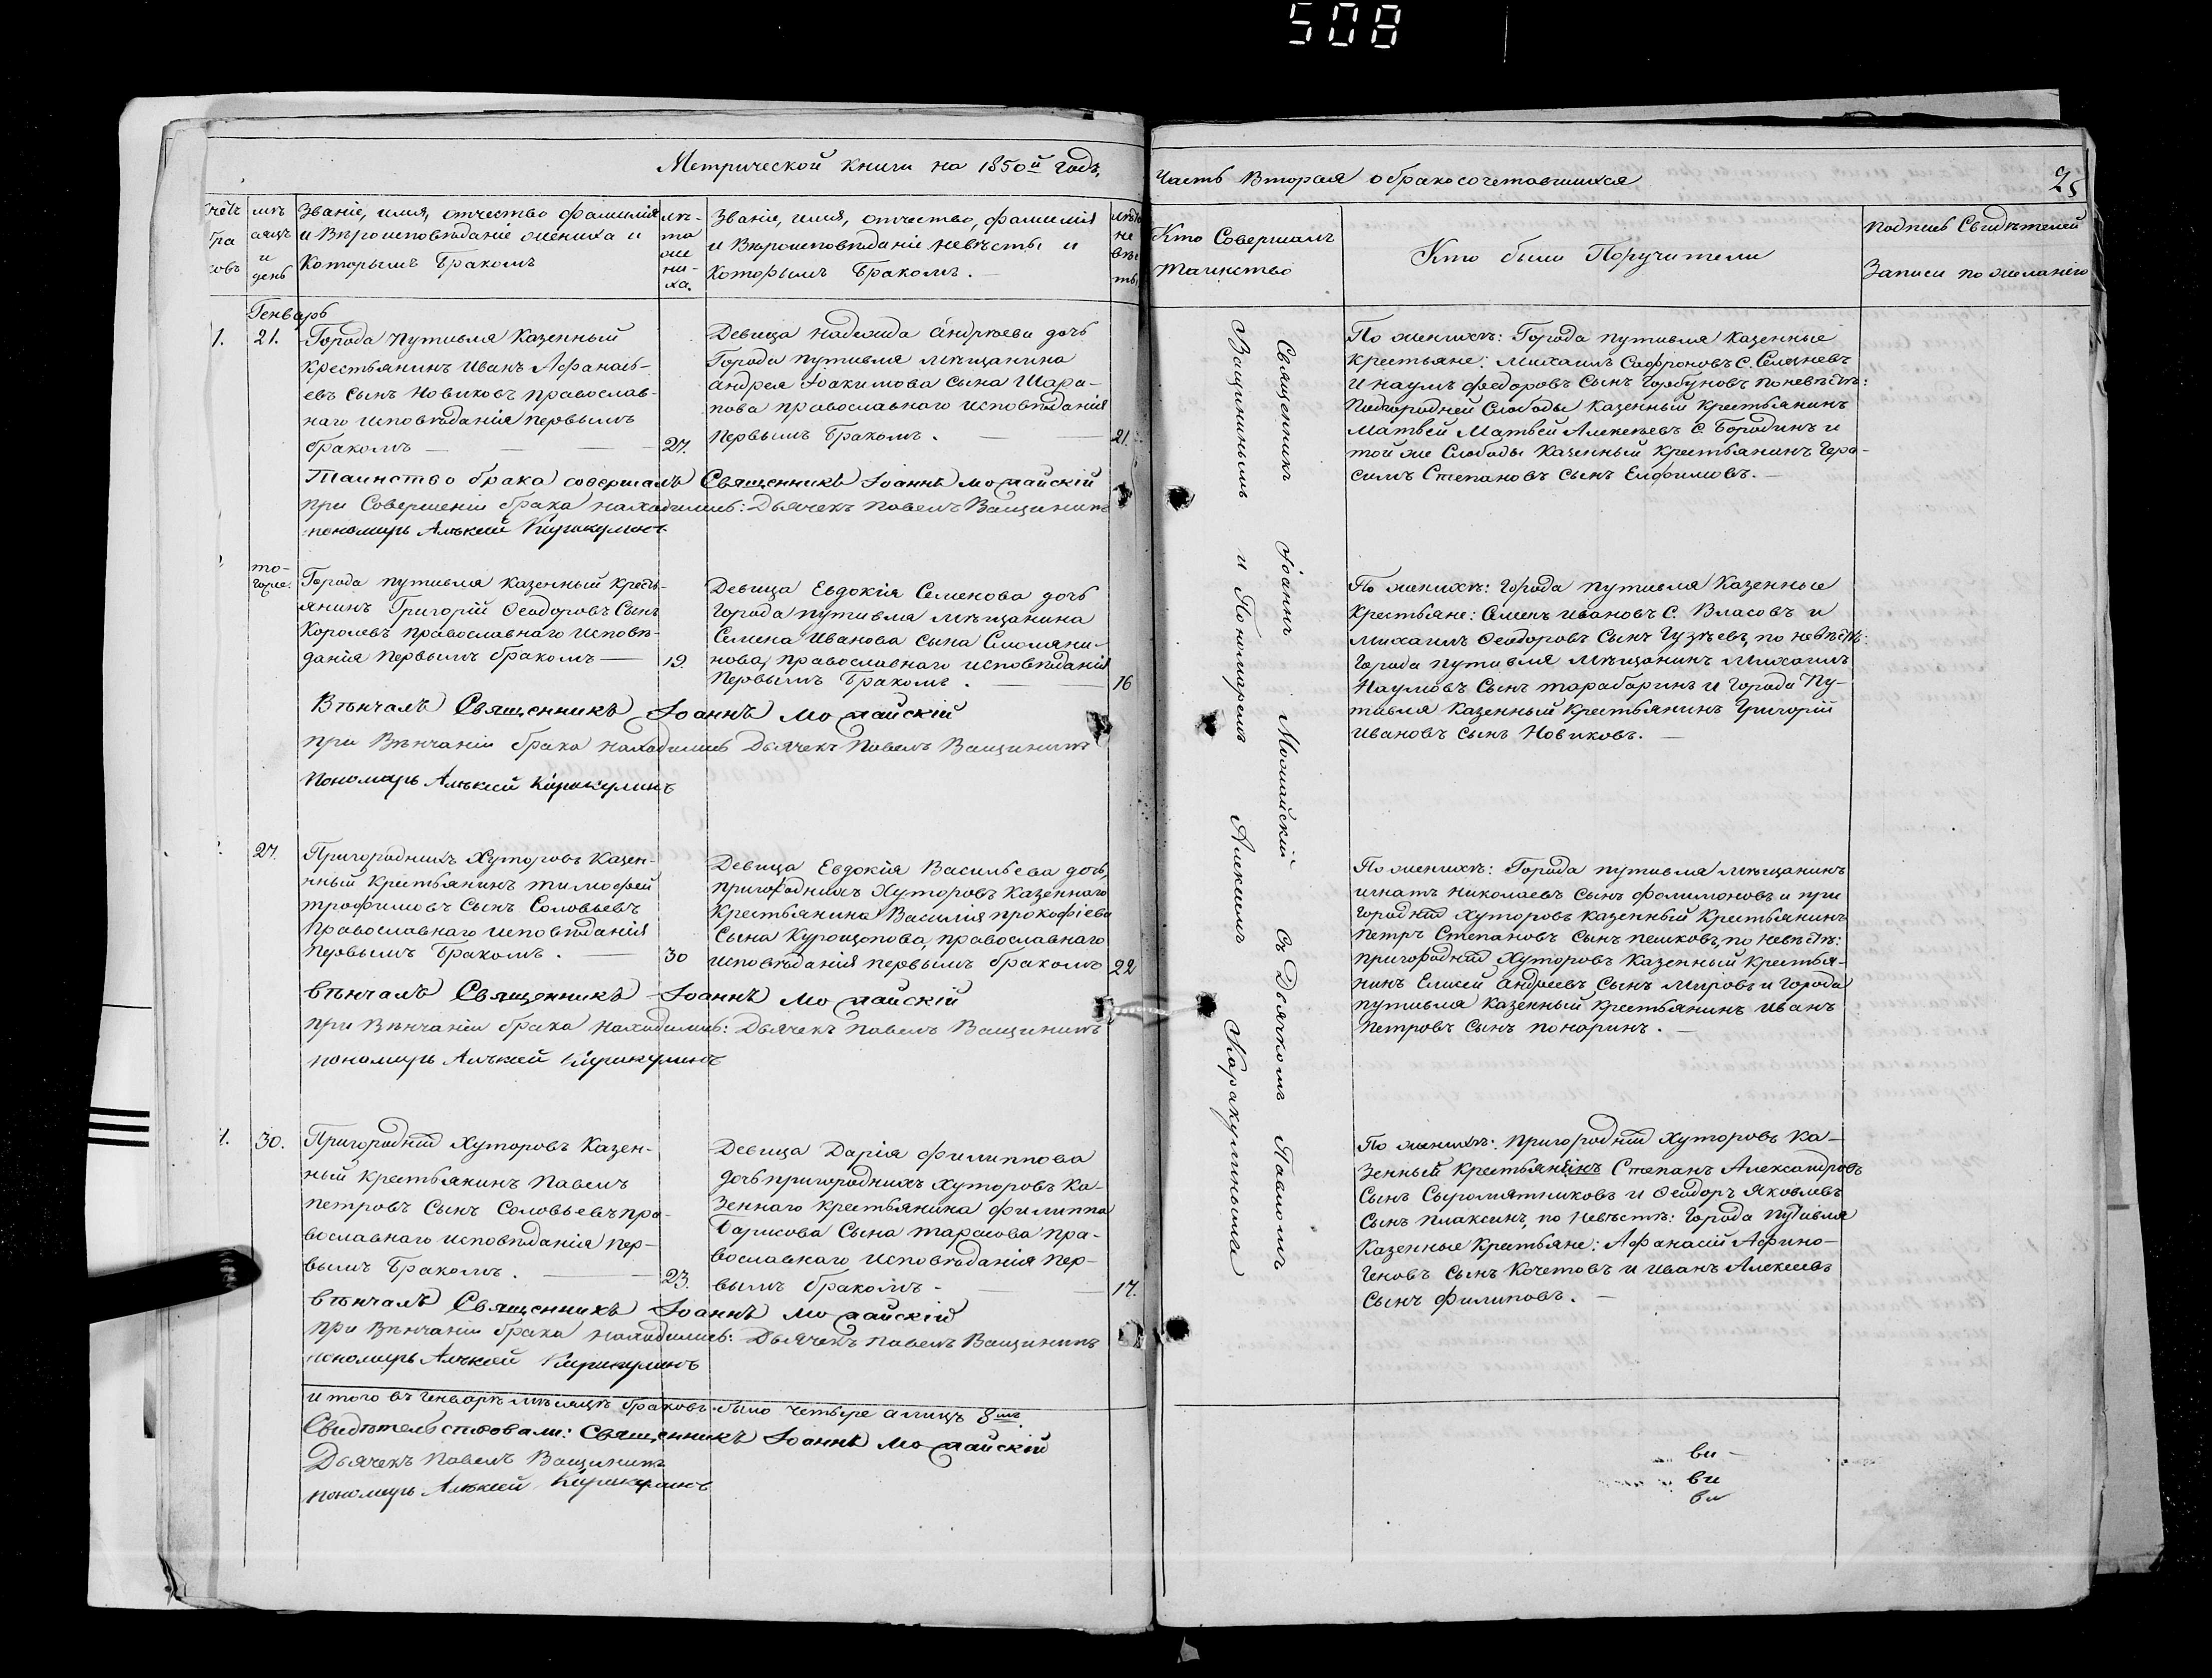 508
Метрической книги на 1850й годъ,
счётъ бра ковъ
мѣ сяцъ и день
Званіе, имя, отчество фамилія
и Вѣроисповѣданіе жениха и
Которымъ Бракомъ
лѣ-
та
же
ни-
ха.
Званіе, имя, отчество, фамилія
и Вѣроисповѣданіе невѣсты и
Которымъ Бракомъ.
лѣта
не
вѣс
ты
Генварь
1.
21.
Города Путивля Казенный
Крестьянинъ Иванъ Афанась-
евъ Сынъ Новиковъ православ-
наго исповѣданія первымъ
бракомъ
27.
Девица Надежда Андреева дочь
Города путивля мѣщанина
Андрея Іоакимова Сына Шара-
пова православнаго исповѣданія
Первымъ Бракомъ.
21.
Таинство брака совершалъ Священникъ Іоаннъ Можайскій
при Совершеніи брака находились: Дьячекъ Павелъ Ващининъ
пономарь Алѣксей Каракулинъ
то-
гоже.
Города путивля казенный кресть-
янинъ Григорій Ѳеодоровъ Сынъ
Королевъ православнаго исповѣ-
данія первымъ бракомъ
19.
Девица Евдокія Семенова дочь
Города путивля мѣщанина
Семена Иванова сына Смоляни-
нова, православнаго исповѣданія
Первымъ Бракомъ.
16
Вѣнчалъ Священникъ Іоаннъ Можайскій
при Вѣнчаніи брака находились Дьячекъ Павелъ Ващининъ
Пономарь Алѣксей Каракулинъ
27.
Пригородныхъ Хуторовъ Казен-
ный Крестьянинъ тимофей
трофимовъ Сынъ Соловьевъ
Православнаго исповѣданія
первымъ Бракомъ.
30
Девица Евдокія Васильева дочь,
пригородныхъ Хуторовъ Казеннаго
Крестьянина Василія прокофіева
Сына Курощопова, православнаго
исповѣданія первымъ бракомъ
22
вѣнчалъ Священникъ Іоаннъ Можайскій
при Вѣнчаніи брака находились: Дьячекъ павелъ Ващининъ
пономарь Алѣксей Каракулинъ
30.
Пригородныхъ Хуторовъ Казен-
ный крестьянинъ Павелъ
петровъ Сынъ Соловьевъ пра-
вославнаго исповѣданія пер-
вымъ Бракомъ.
23.
Девица Дарія филиппова
дочь пригородныхъ Хуторовъ Ка-
зеннаго Крестьянина филиппа
Барисова Сына тарасова пра-
вославнаго исповѣданія пер-
вымъ бракомъ
17.
вѣнчалъ Священникъ Іоаннъ Можайскій
при Вѣнчаніи брака находились: Дьячекъ павелъ Ващининъ
пономарь Алѣксей Каракулинъ
итого въ Генварѣ мѣсяцѣ браковъ было четыре а лицъ 8мь.
Свидѣтельствовали: Священникъ Іоаннъ Можайскій
Дьячекъ Павелъ Ващининъ
пономарь Алѣксей Каракулинъ
Часть Вторая о бракосочетавшихся
25
Кто Совершалъ
Таинство
Кто были Поручители
Подпись Свидѣтелей
Записи по желанію
Священникъ Іоаннъ Можайскій съ Дьячкомъ Павломъ
Ващининымъ и Пономаремъ Алексѣемъ Каракулинымъ
По женихѣ: Города путивля казенные
крестьяне: Михаилъ Сафроновъ С. Селезневъ
и наумъ федоровъ Сынъ Горбуновъ по невѣстѣ:
Подгородней Слободы Казенный Крестьянинъ
Матвей Матвей Алексѣевъ С. Бородинъ и
той же Слободы Казенный Крестьянинъ Гера-
симъ Степановъ Сынъ Емфимовъ.
По женихѣ: Города путивля Казенные
Крестьяне: Семенъ ивановъ С. Власовъ и
михаилъ Ѳеодоровъ Сынъ Гузѣевъ, по невѣстѣ:
Города путивля мѣщанинъ михаилъ
Наумовъ Сынъ тарабаринъ и Города Пу-
тивля Казенный Крестьянинъ Григорій
ивановъ сынъ Новиковъ.
По женихѣ: Города путивля мѣщанинъ
игнатъ николаевъ Сынъ фалимоновъ и при
городныхъ Хуторовъ казенный Крестьянинъ
петръ Степановъ Сынъ пешковъ, по невѣстѣ:
пригородныхъ Хуторовъ Казенный Крестья-
нинъ Елисей Андреевъ Сынъ Мировъ и Города
путивля Казенный Крестьянинъ Иванъ
петровъ Сынъ понаринъ.
По женихѣ: пригородныхъ Хуторовъ Ка-
зенный Крестьянинъ Степанъ Александровъ
Сынъ Сыромятниковъ и Ѳеодоръ Яковлевъ
Сынъ плаксинъ, по невѣстѣ: Города путивля
Казенные Крестьяне: Афанасій Афино-
геновъ Сынъ Кочетовъ и иванъ Алексеевъ
Сынъ филиповъ.
ви
ви
ви